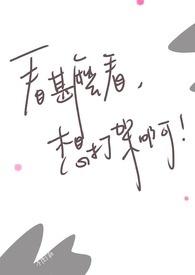 看甚麼看,
想打架啊!